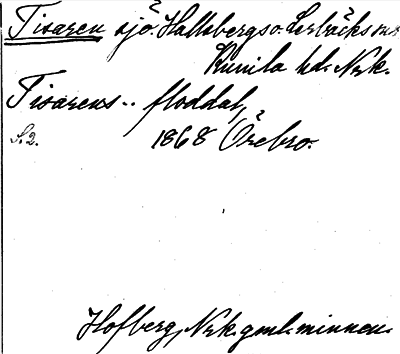 Tisaren sjö Hallsbergs o. Lerbäcks snr
Kumla hd. Nrk.
Tisarens .. floddal,
S. 2. 1868 Örebro.
Hofberg, Nrk. gml. minnen.